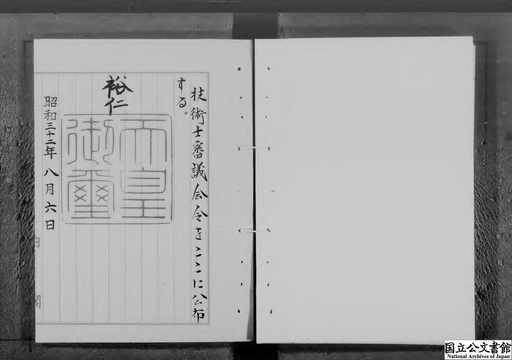 技術士審議会令をここに公布
する。
裕仁
天皇
御璽
昭和三十二年八月六日
国立公文書館
National Archives of Japan